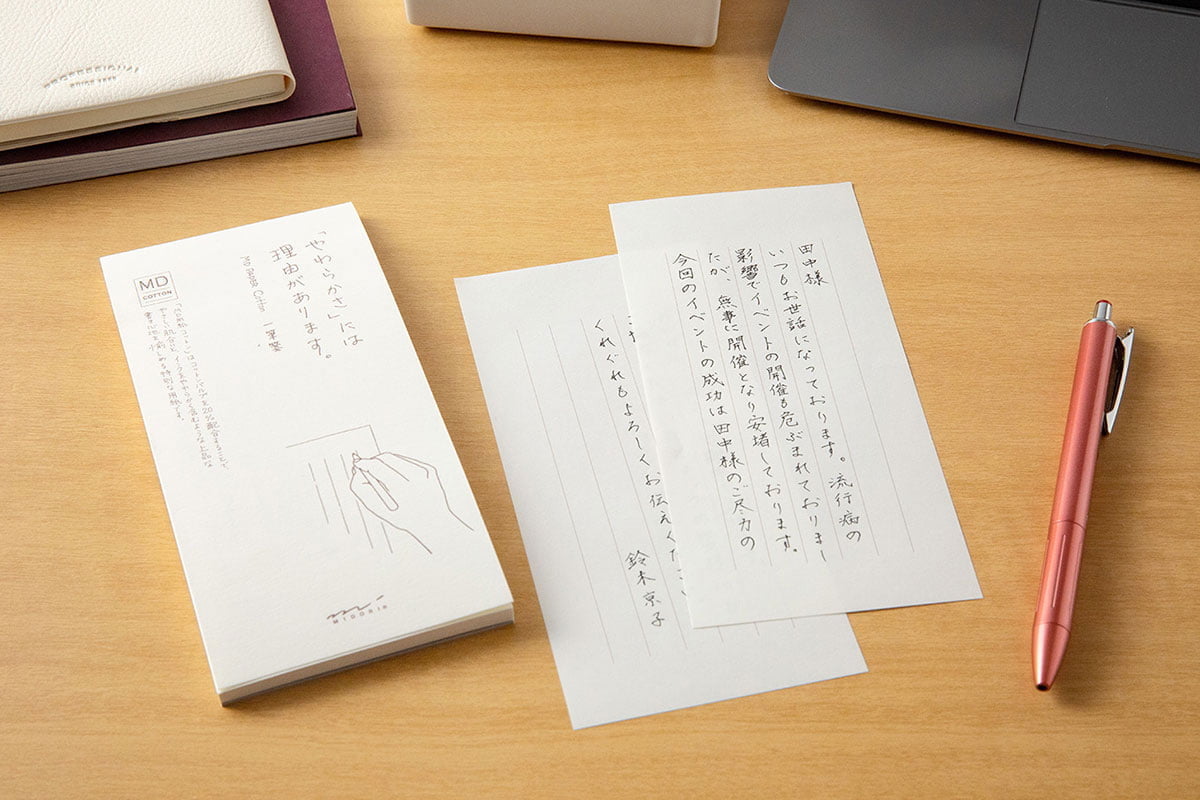 「やわらかさ」には
理由があります。
MD Paper Cotton 一筆箋
MD
COTTON
「MD用紙コットン」はコットンパルプを20%配合することで、
MIDORI
田中様
いつもお世話になっております。流行病の
影響でイベントの開催も危ぶまれておりまし
たが、無事に開催となり安堵しております。
今回のイベントの成功は田中様のご尽力の
くれぐれもよろしくお伝えくださ
鈴木京子